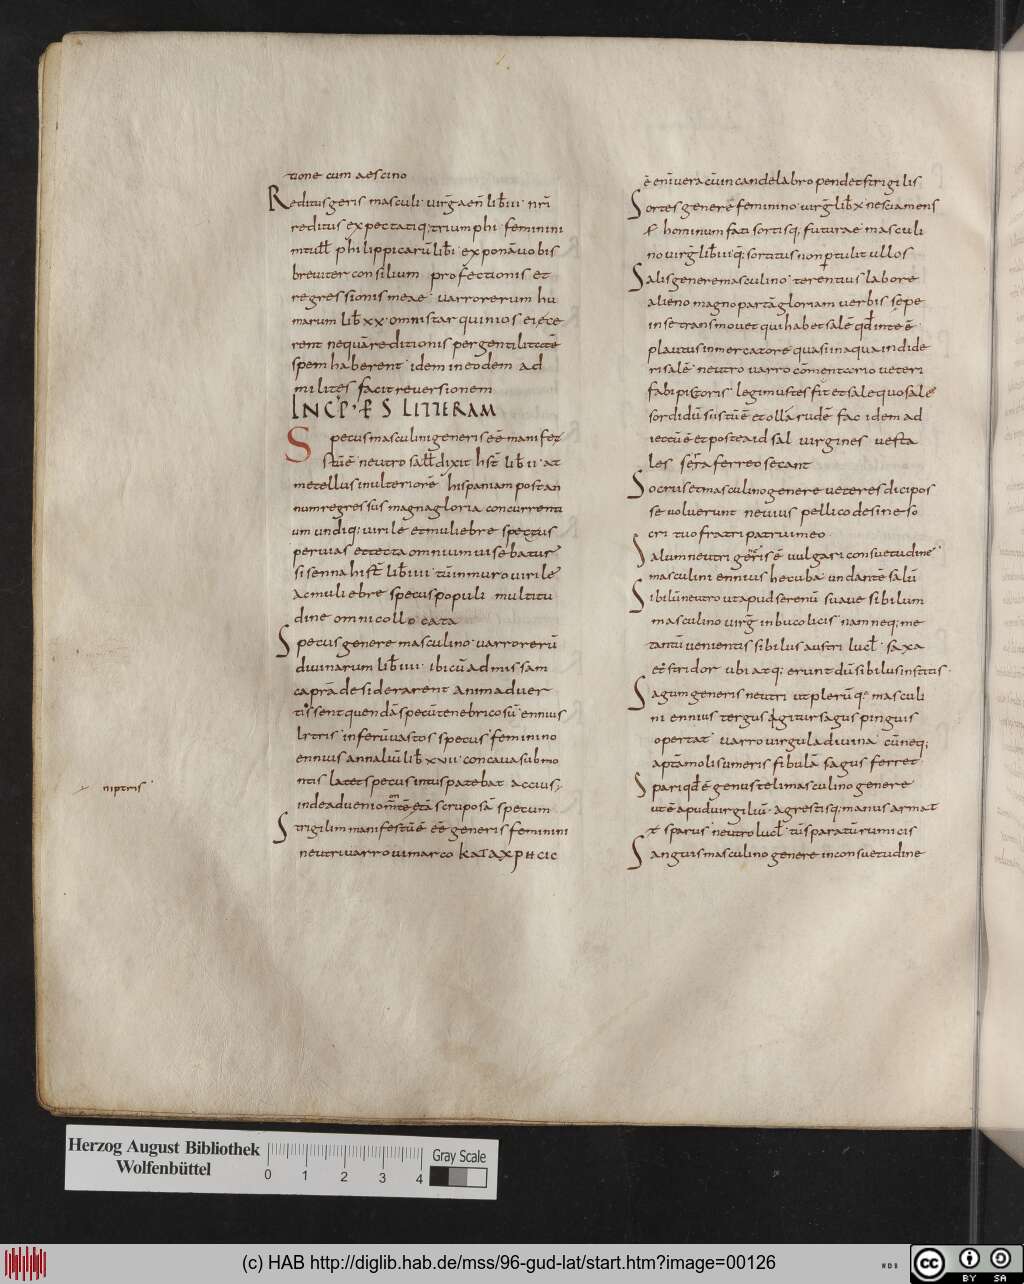 tione cum aescino
Reditus geris masculi· virg̅ aen̅ lib̅ iii· nr̅i
reditus expectatiq; triumphi· feminini
mtull̅ philippicaru̅ lib̅ i· exponā uobis
breviter consilium profectionis et
regressionis meae· varro rerum hu
marum lib̅ xx· omnis tar quinios eiece
rent nequā reditionis per gentilitatē
spem haberent· idem in eodem ad
milites facit reversionem
INCP̅· P̅ S LITTERAM
Specus masculini generis eē manifes
stū ē· neutro sall̅ dixit hst̅ lib̅ ii· at
metellus in ulteriorē hispaniam post an
num regressus magna gloria concurrenti
um undiq; virile et muliebre spectus
per vias et tecta omnium visebatur
sisenna hist̅ lib̅ iiii· tū in muro virile
ac muliebre specus populi multitu
dine omni collocata
Specus genere masculino· varro rerū
divinarum lib̅ iiii· ibi cū admissam
caprā desiderarent animadver
tissent quendā specū tenebricosū· ennius
Lrtris· inferū vastos specus· feminino
ennius annaliū lib̅ xvii· concava sub mo
ntis latet specus intus patebat· accius;
inde advenio mon̅tē etā scruposā specum
Strigilim manifestū ē eē generis feminini
neutri varro vimarco ΚΑΤΑΧΡΗCΙC
niptris
ē enī vera cū in candelabro pendet strigilis
Sortes generē feminino· virg̅ lib̅ x· nescia mens
hominum fati sortisq; futurae· masculi
no virg̅ lib̅ iii· q̅; sortitus non ptulit ullos
Salis genere masculino· terentius labore
aliēno magno partā gloriam verbis sepe
in se transmovet qui habet salē qd̅ in te ē·
plautus in mercatore quasi in aqua indide
ri salē· neutro varro cōmentario veteri
fabi pictoris· legimus tes fit et sale quo sale
sordidū sustū ē et ollā rudē fac idem ad
iectū ē et postea id sal virgines vesta
les serra ferreo secant
Socrus et masculino genere veteres dici pos
se voluerunt· nevius pellico desine so
cri tuo fratri patruimeo
Salum neutri geris ē vulgari consuetudine·
masculini ennius hecuba· undantē salū
Sibilū neutro ut apud serenū suave sibilum
masculino virg̅ in bucolicis· nam neq; me
tantū venientis sibilus austri· lucl̅· saxa
et stridor ubi atq; erunt dū sibilus institis·
Sagum generis neutri ut plerūq;· masculi
ni ennius tergus igitur sagus pinguis
opertat· varro virgula divina· cū neq;
aptā mollis umeris fibulā sagus ferret·
Spari qd̅ ē genus teli masculino genere
ut ē apud virgiliū· agrestisq; manus armat
sparus· neutro lucl̅· tū spara tū rumicis
Sanguis masculino genere in consuetudine
Herzog August Bibliothek
Wolfenbüttel
0 1 2 3 4
Gray Scale
(c) HAB http://diglib.hab.de/mss/96-gud-lat/start.htm?image=00126
WDB
cc BY SA